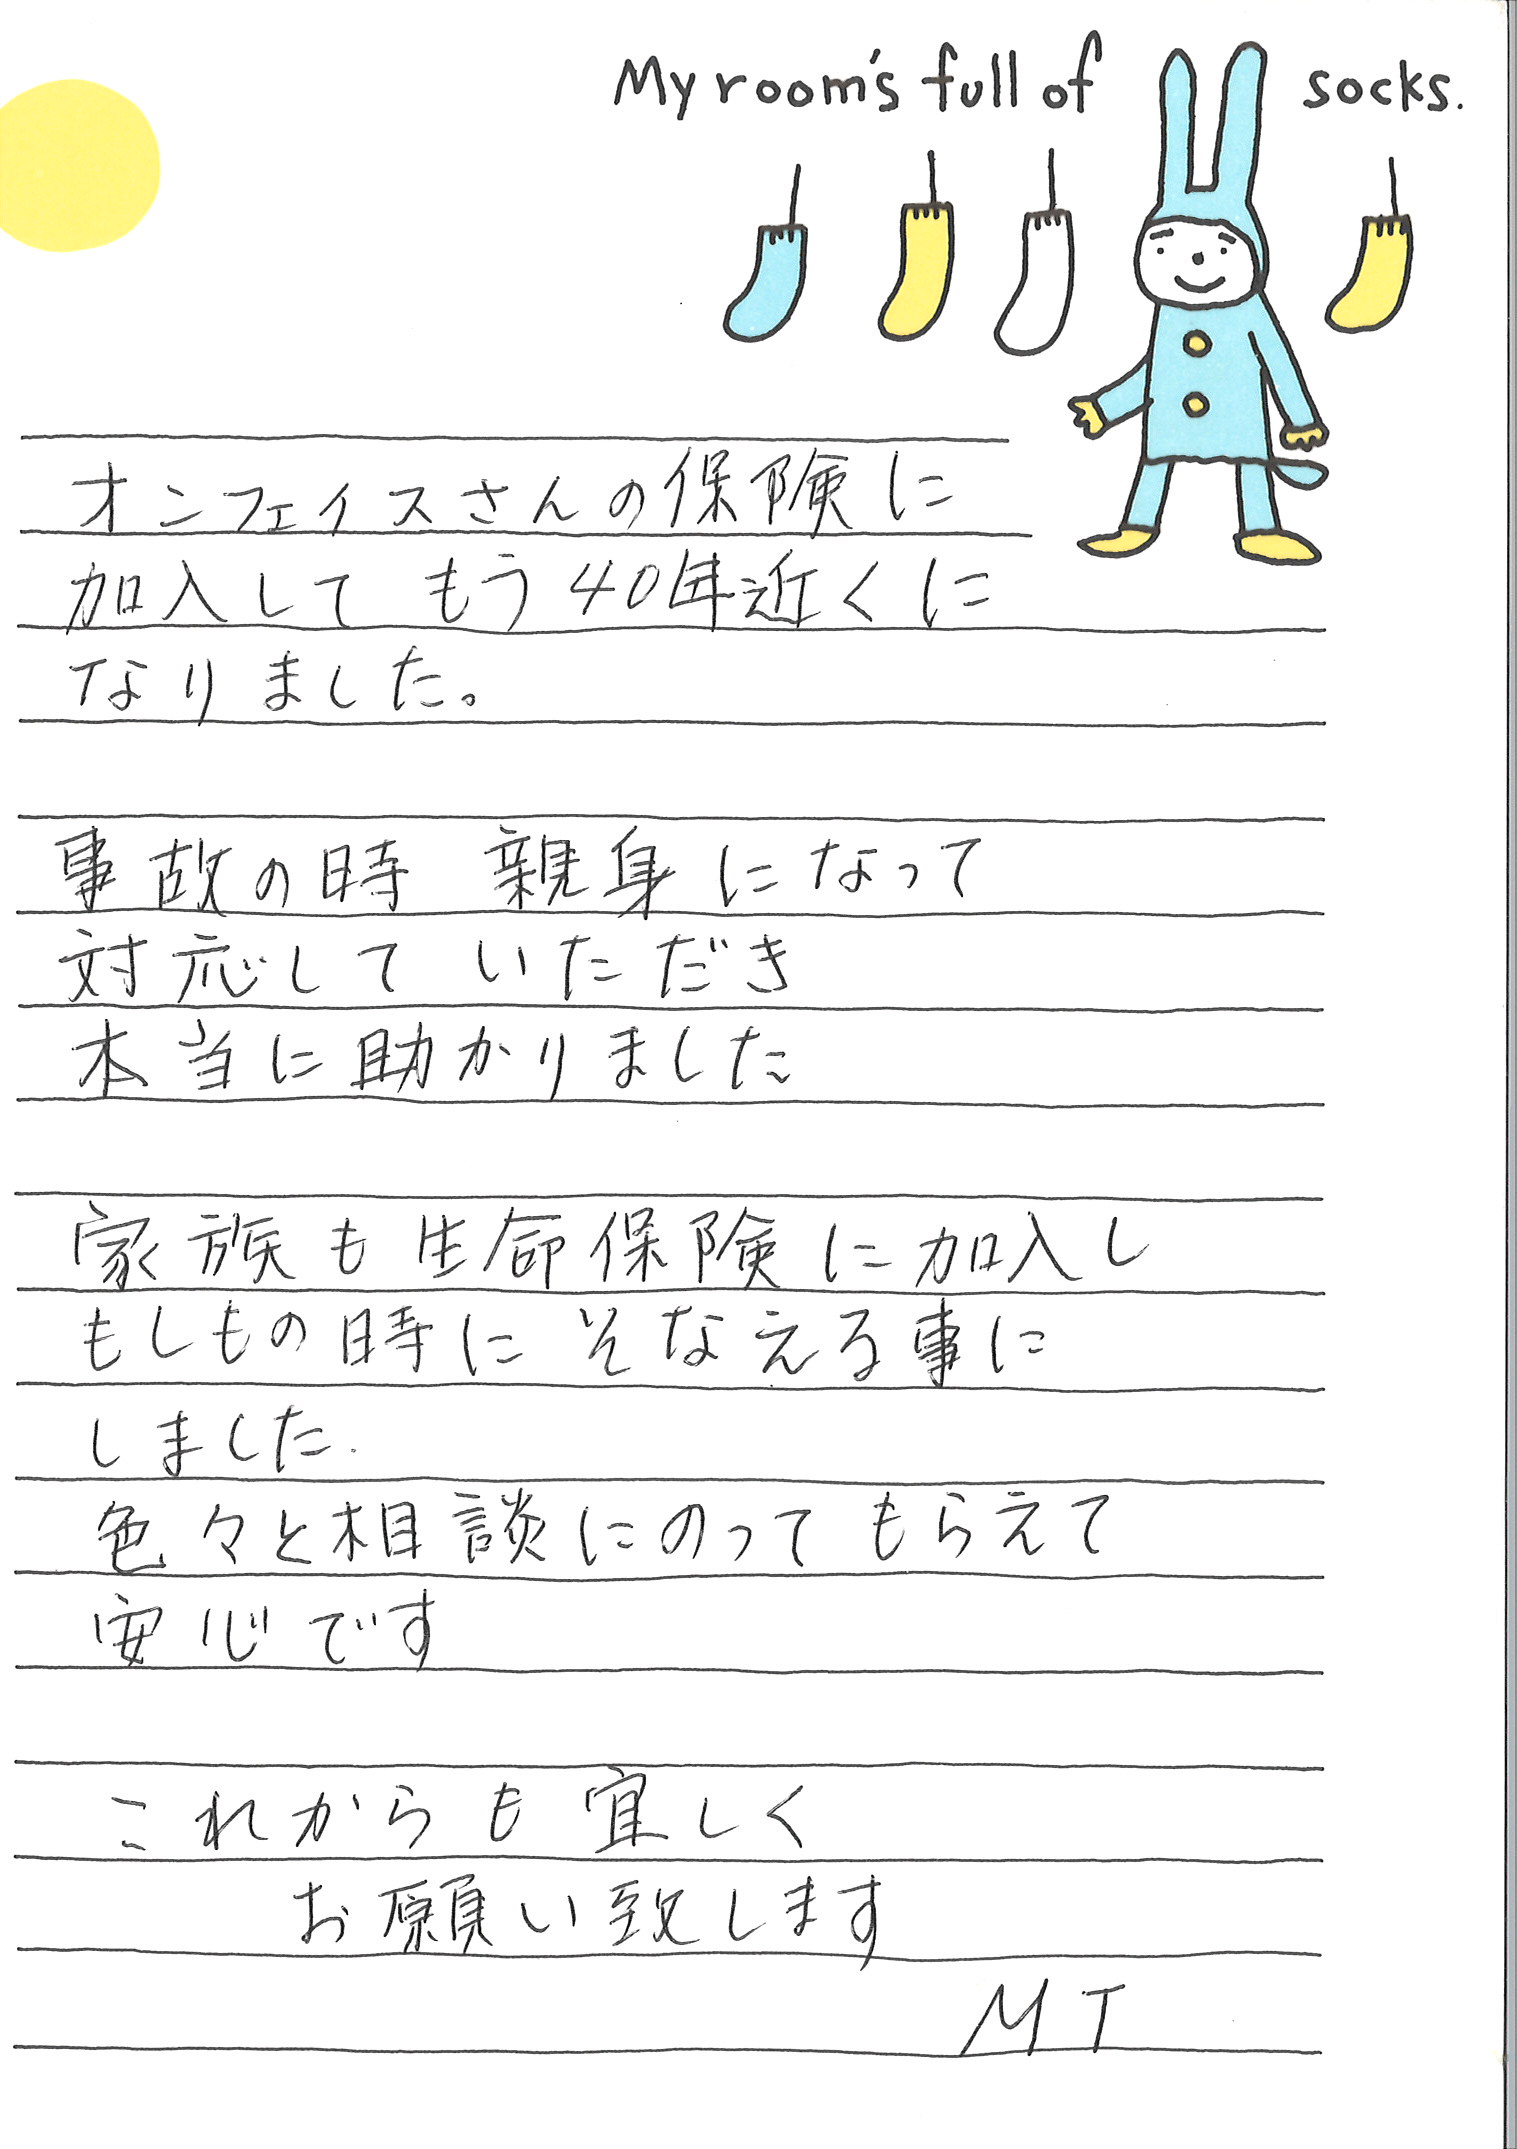 My room's full of socks.
オンフェイスさんの保険に
加入して もう40年近くに
なりました。
事故の時 親身になって
対応して いただき
本当に助かりました
家族も生命保険に加入し
もしもの時に そなえる事に
しました.
色々と相談にのって もらえて
安心です
これからも宜しく
お願い致します
MT